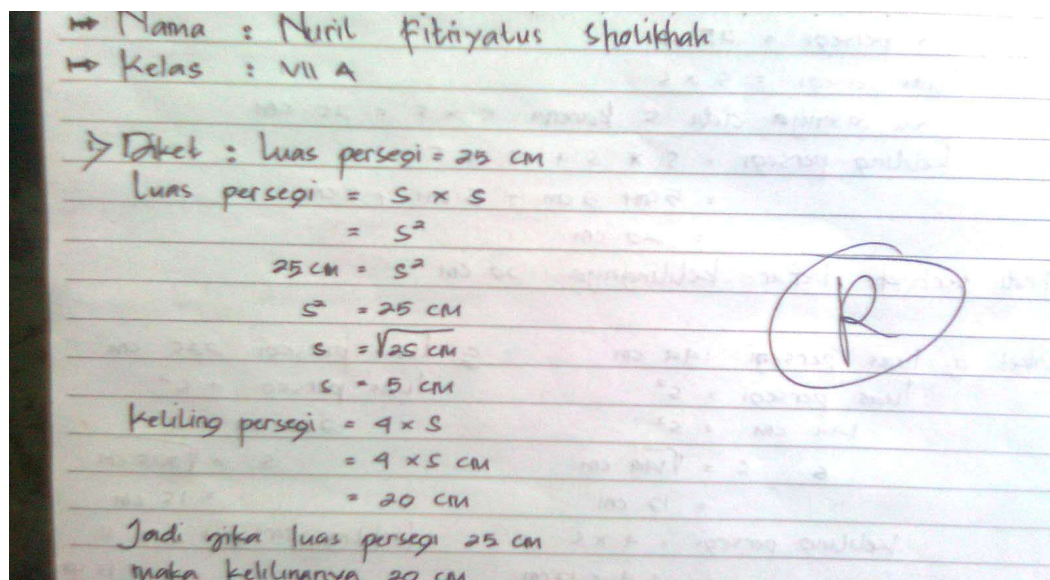 Nama : Nuril Fitriyatus Sholikhah
Kelas : VII A
1> Diket : Luas persegi = 25 cm
Luas persegi = s × s
= s²
25 cm = s²
s² = 25 cm
s = √25 cm
s = 5 cm
Keliling persegi = 4 × s
= 4 × 5 cm
= 20 cm
Jadi jika luas persegi 25 cm
maka kelilingnya 20 cm
R